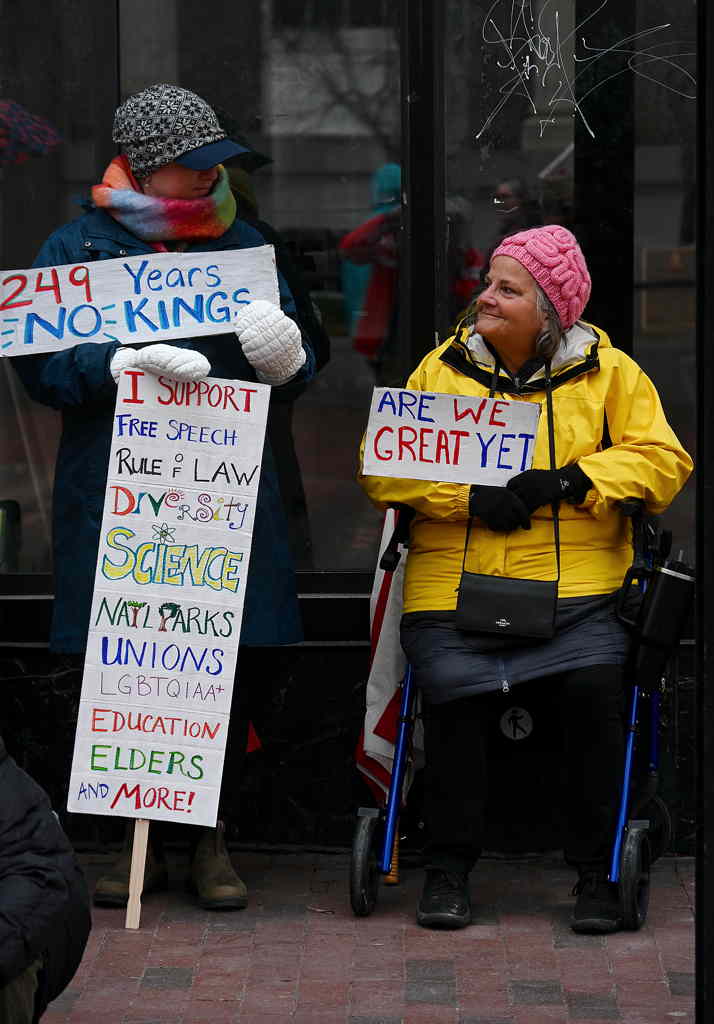 249 Years
NO KINGS
I SUPPORT
FREE SPEECH
RULE OF LAW
DIVERSITY
SCIENCE
NAT'L PARKS
UNIONS
LGBTQIAA+
EDUCATION
ELDERS
AND MORE!
ARE WE
GREAT YET
COACH